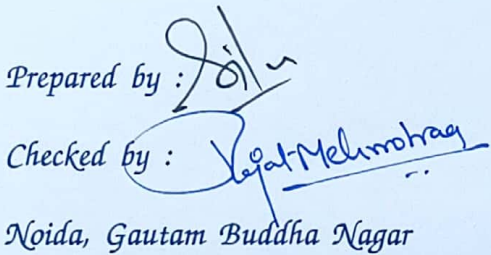 Prepared by :
Checked by : Rajat Mehrotra
Noida, Gautam Buddha Nagar